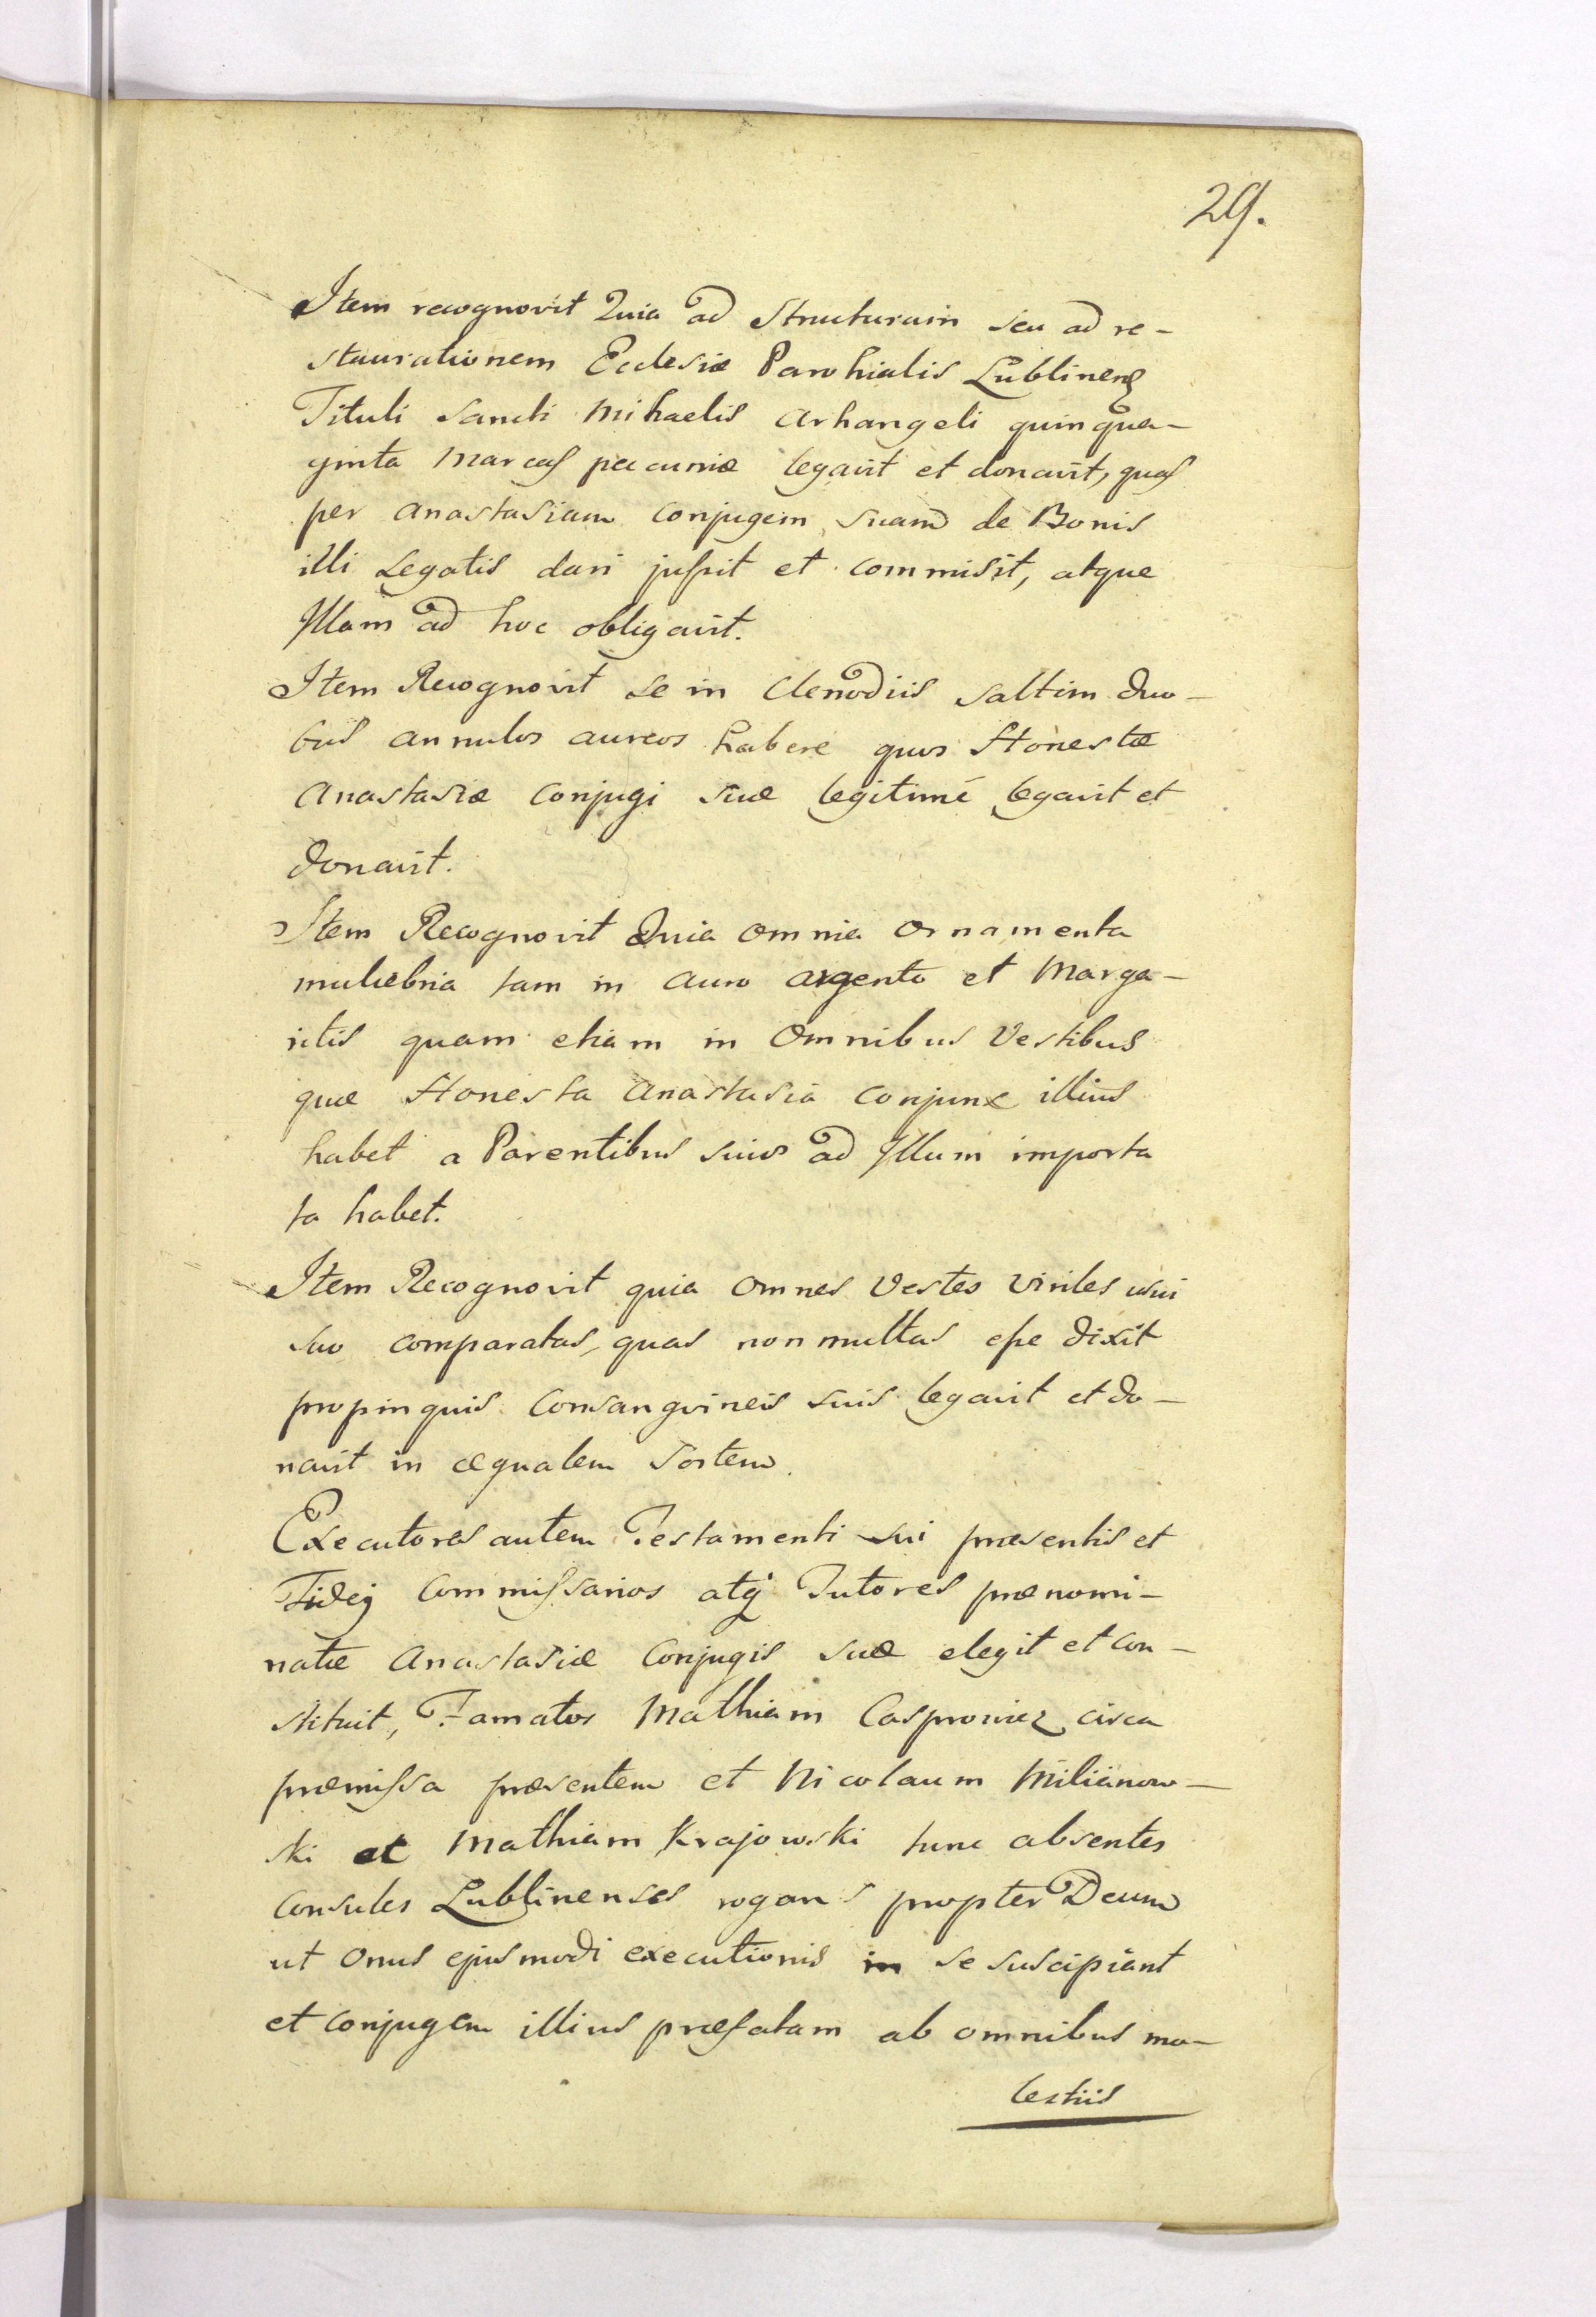 29.
Item recognovit Quia ad Structuram seu ad re-
staurationem Ecclesiæ Parohialis Lublinens
Tituli Sancti Mihaelis Arhangeli quinqua-
ginta Marcas pecuniæ legavit et donavit, quas
per Anastasiam Conjugem suam de Bonis
illi Legatis dari jussit et commisit, atque
Illam ad hoc obligavit.
Item Recognovit se in Clenodiis saltim duo-
bus annulos aureos habere quos Honestæ
Anastasiæ Conjugi suæ legitimé legavit et
donavit.
Item Recognovit Quia omnia ornamenta
muliebria tam in auro argento et Marga-
ritis quam etiam in omnibus Vestibus
quæ Honesta Anastasia Conjunx illius
habet a Parentibus suis ad Illum importa
ta habet.
Item Recognovit quia omnes Vestes viriles usui
suo comparatas, quas non multas esse dixit
propinquis Consangvineis suis legavit et do-
navit in æqualem sortem.
Executores autem Testamenti sui præsentis et
Fidej Commissarios atq Tutores prænomi-
natæ Anastasiæ Conjugis suæ elegit et con-
stituit, Famatos Mathiam Casprowicz circa
præmissa præsentem et Nicolaum Milianow-
ski et Mathiam Krajowski tunc absentes
Consules Lublinenses rogans propter Deum
ut onus ejusmodi executionis in se suscipiant
et Conjugem illius præfatam ab omnibus mo-
lestiis